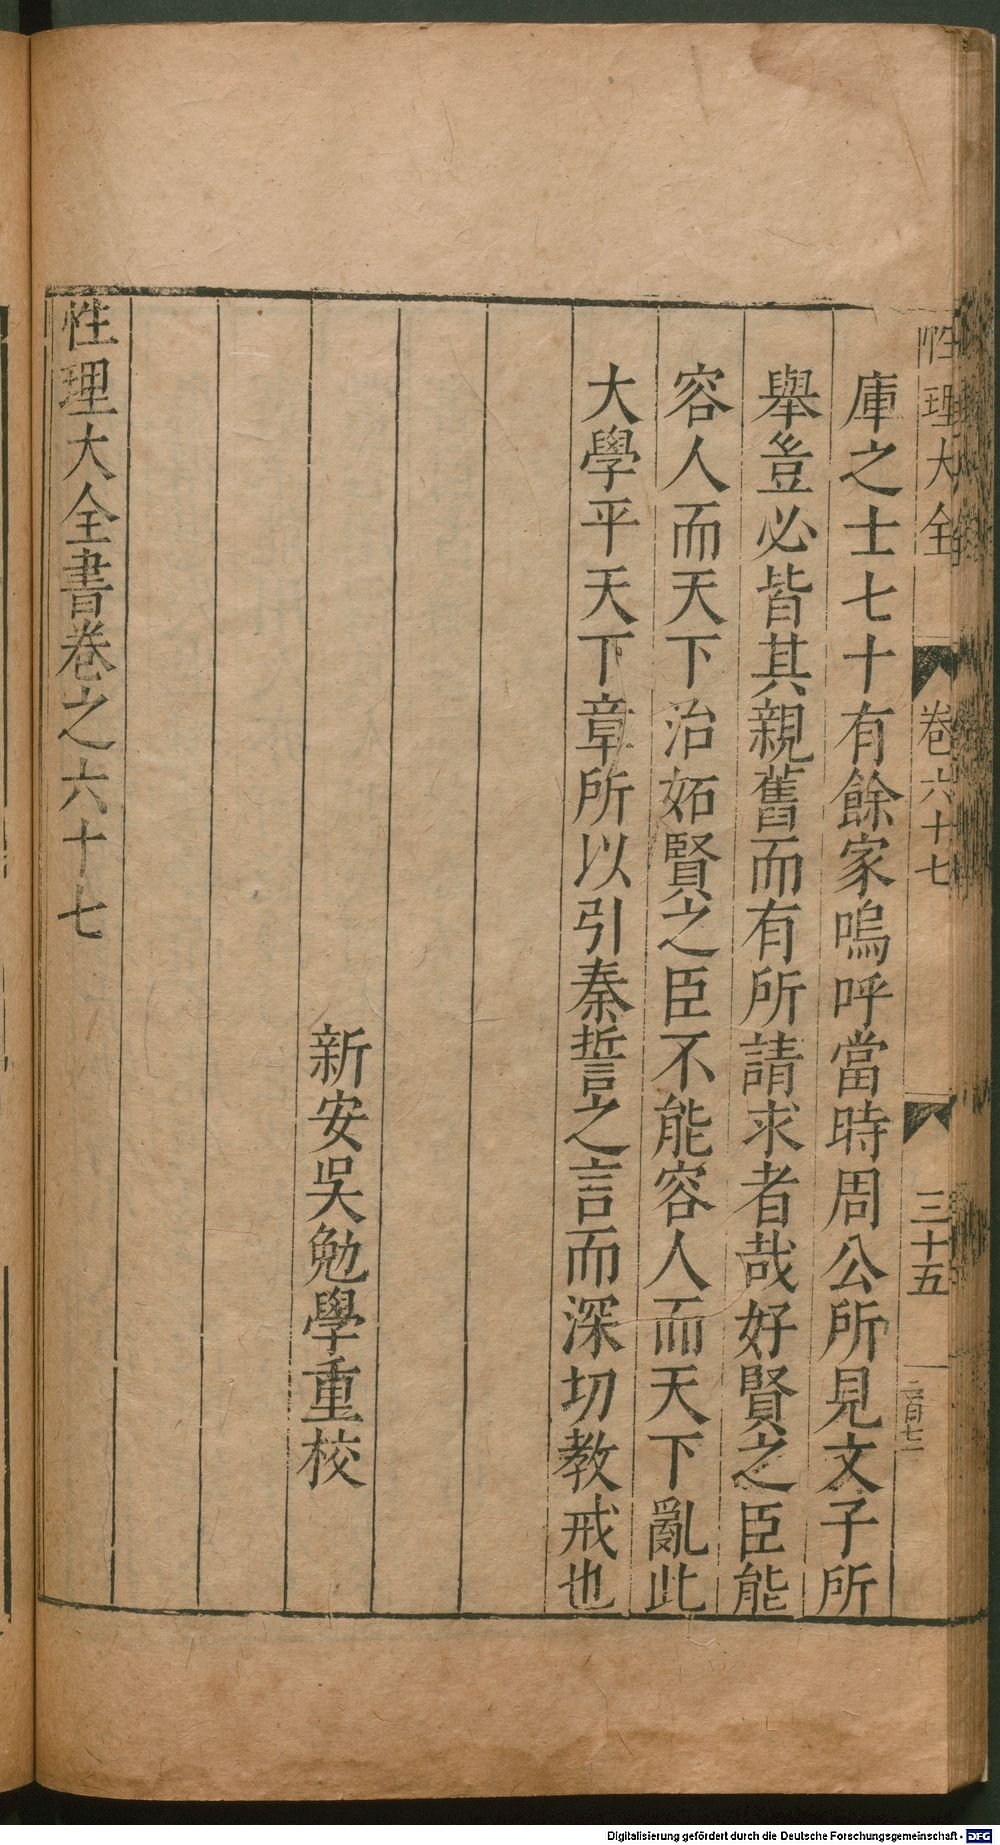 性理大全 卷六十七 三十五
庫之士七十有餘家嗚呼當時周公所見文子所
舉豈必皆其親舊而有所請求者哉好賢之臣能
容人而天下治妬賢之臣不能容人而天下亂此
大學平天下章所以引秦誓之言而深切教戒也
新安吳勉學重校
性理大全書卷之六十七
Digitalisierung gefördert durch die Deutsche Forschungsgemeinschaft - DFG